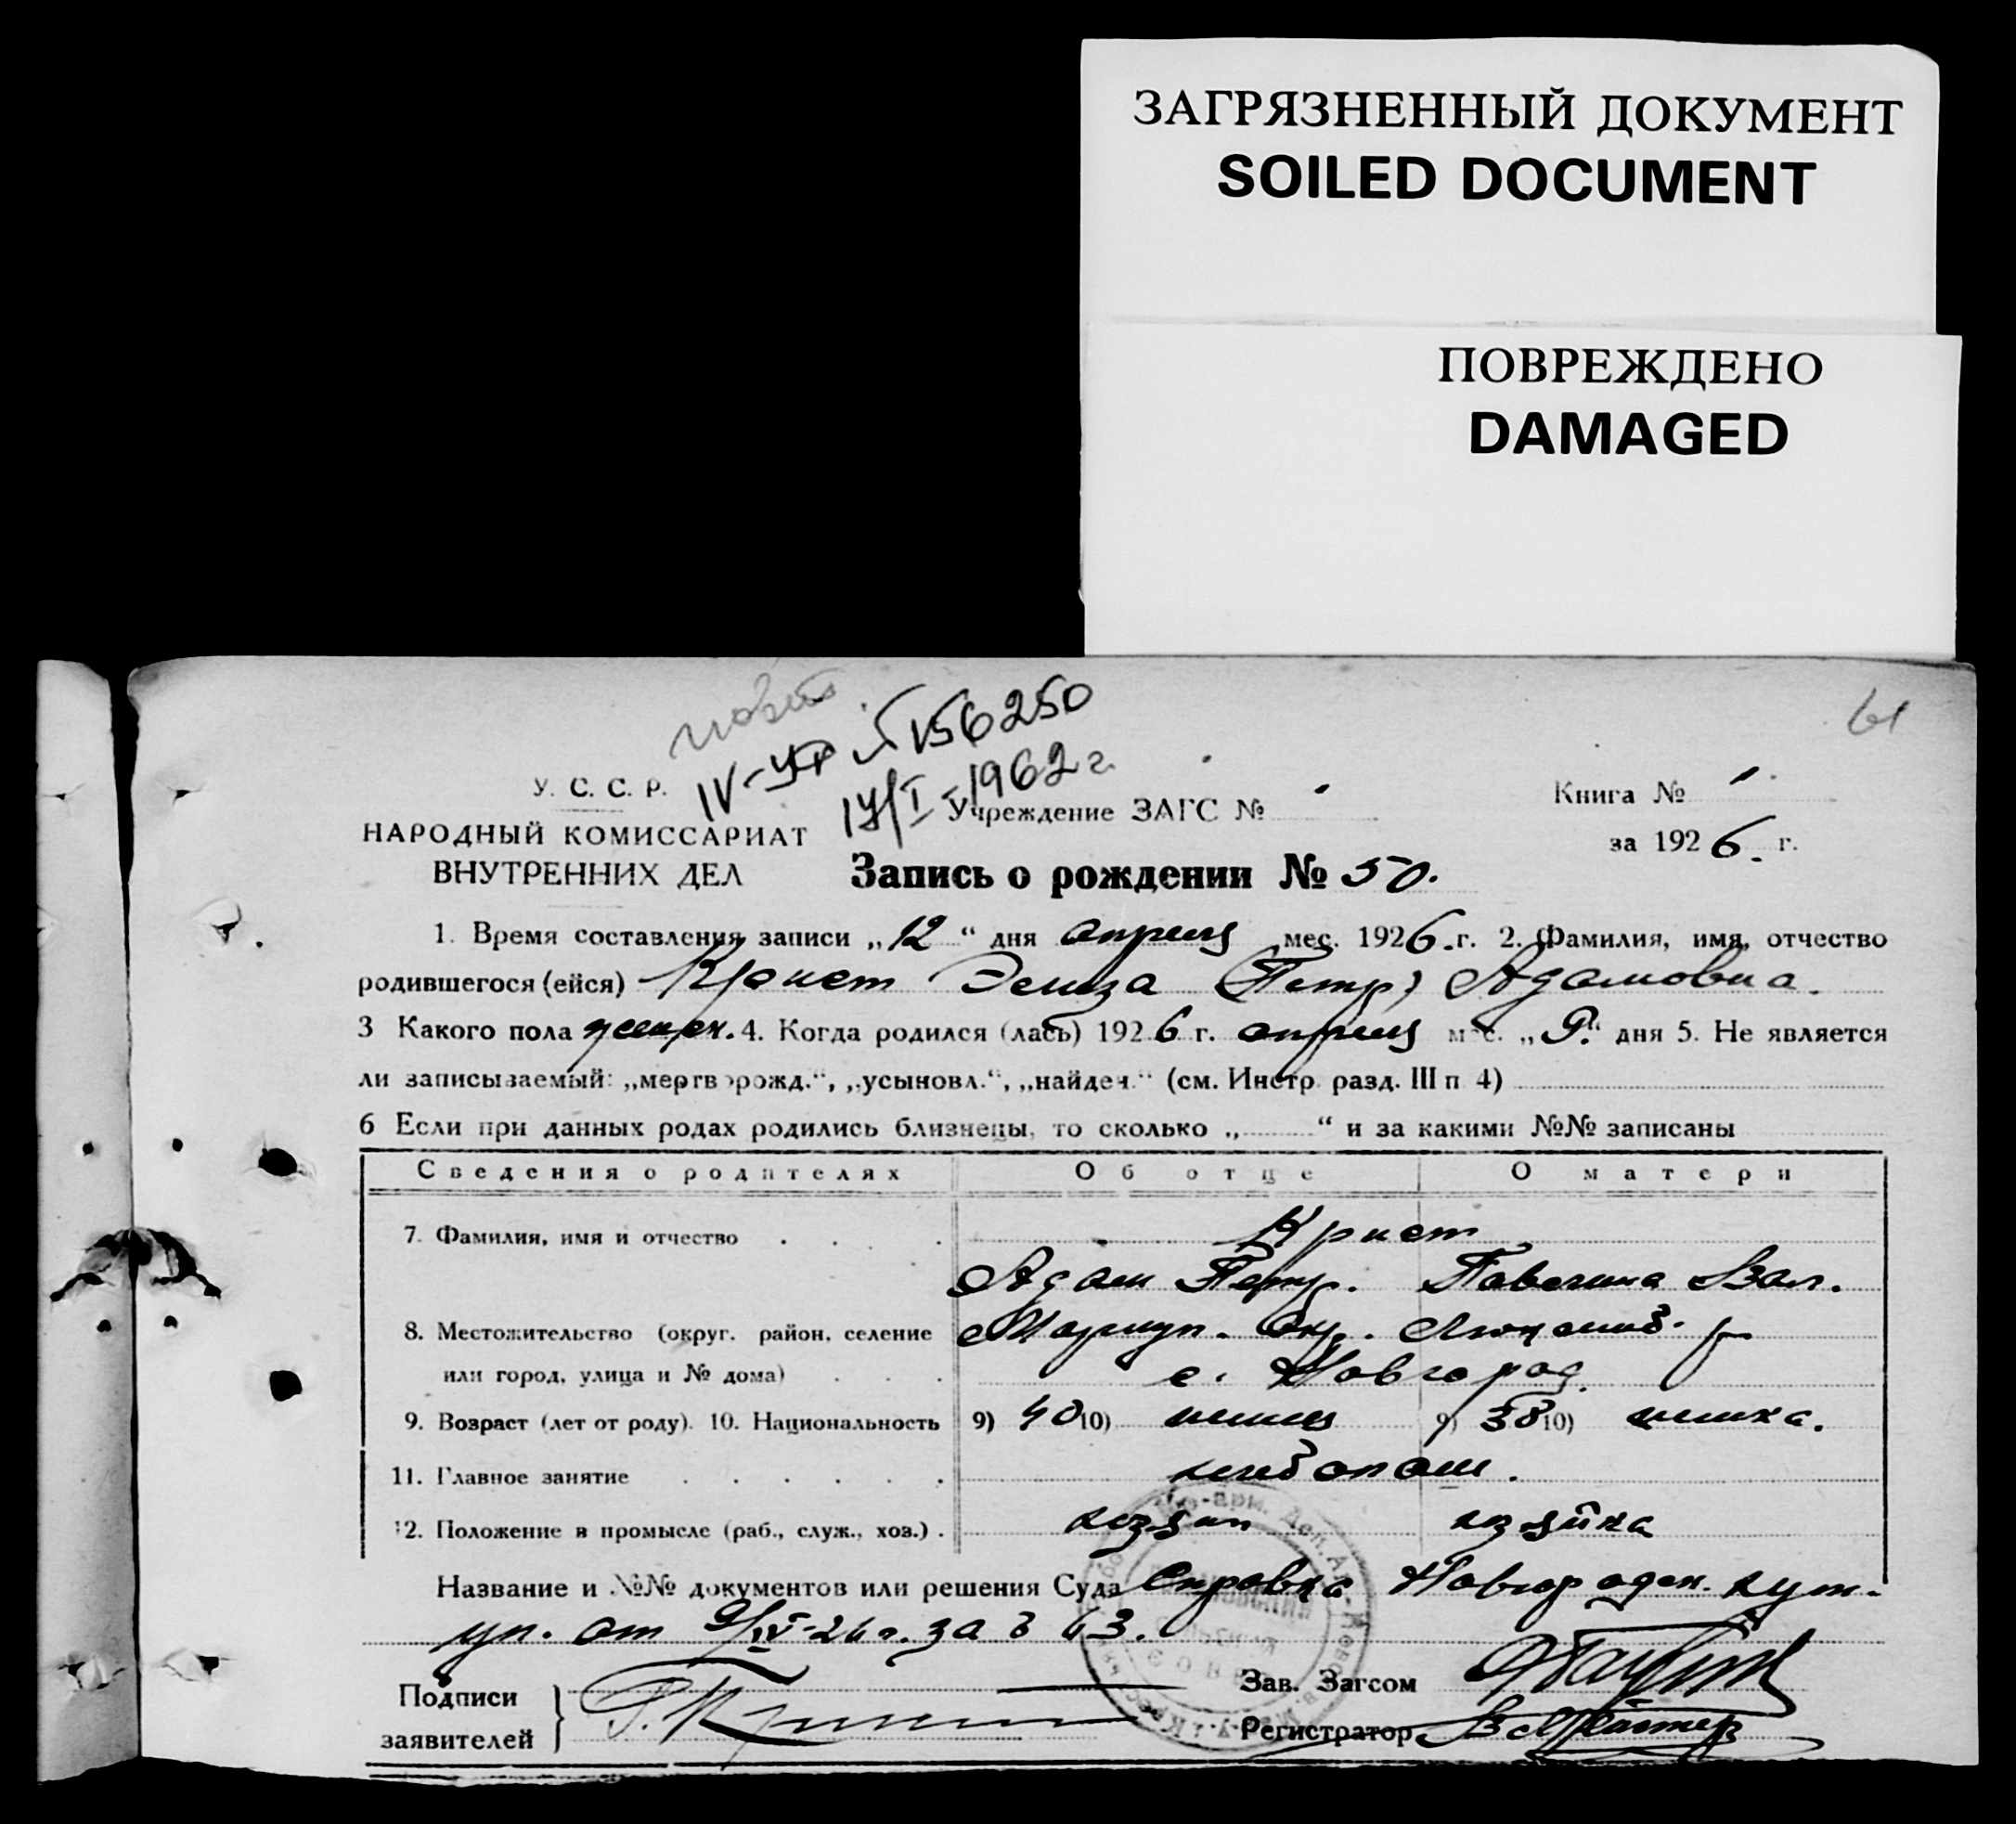 ЗАГРЯЗНЕННЫЙ ДОКУМЕНТ
SOILED DOCUMENT
ПОВРЕЖДЕНО
DAMAGED
61
156250
17/I-1962 г.
У. С. С. Р.
НАРОДНЫЙ КОМИССАРИАТ
ВНУТРЕННИХ ДЕЛ
Учреждение ЗАГС №
Книга № 1
за 1926 г.
Запись о рождении № 50.
1. Время составления записи „12“ дня апреля мес. 1926 г. 2. Фамилия, имя, отчество
родившегося (ейся) Крист Элиза (Петр) Адамовна.
3 Какого пола женск. 4. Когда родился (лась) 1926 г. апреля мес. „9.“ дня 5. Не является
ли записываемый: „мертворожд.“, „усыновл.“, „найден.“ (см. Инстр. разд. III п 4)
6 Если при данных родах родились близнецы, то сколько „ “ и за какими №№ записаны
Сведения о родителях Об отце О матери
7. Фамилия, имя и отчество Крист
Адам Петр. Павелина Вал.
8. Местожительство (округ. район, селение Мариуп. Окр. Люксемб. р
или город, улица и № дома) с. Новгород.
9. Возраст (лет от роду). 10. Национальность 9) 40 10) немец 9) 38 10) немка.
11. Главное занятие хлебопаш.
12. Положение в промысле (раб., служ., хоз.) . хозяин хозяйка
Название и №№ документов или решения Суда Справка Новгородск. хут.
уп. от 9/IV-26 г. за № 63.
Подписи
заявителей
Зав. Загсом
Регистратор